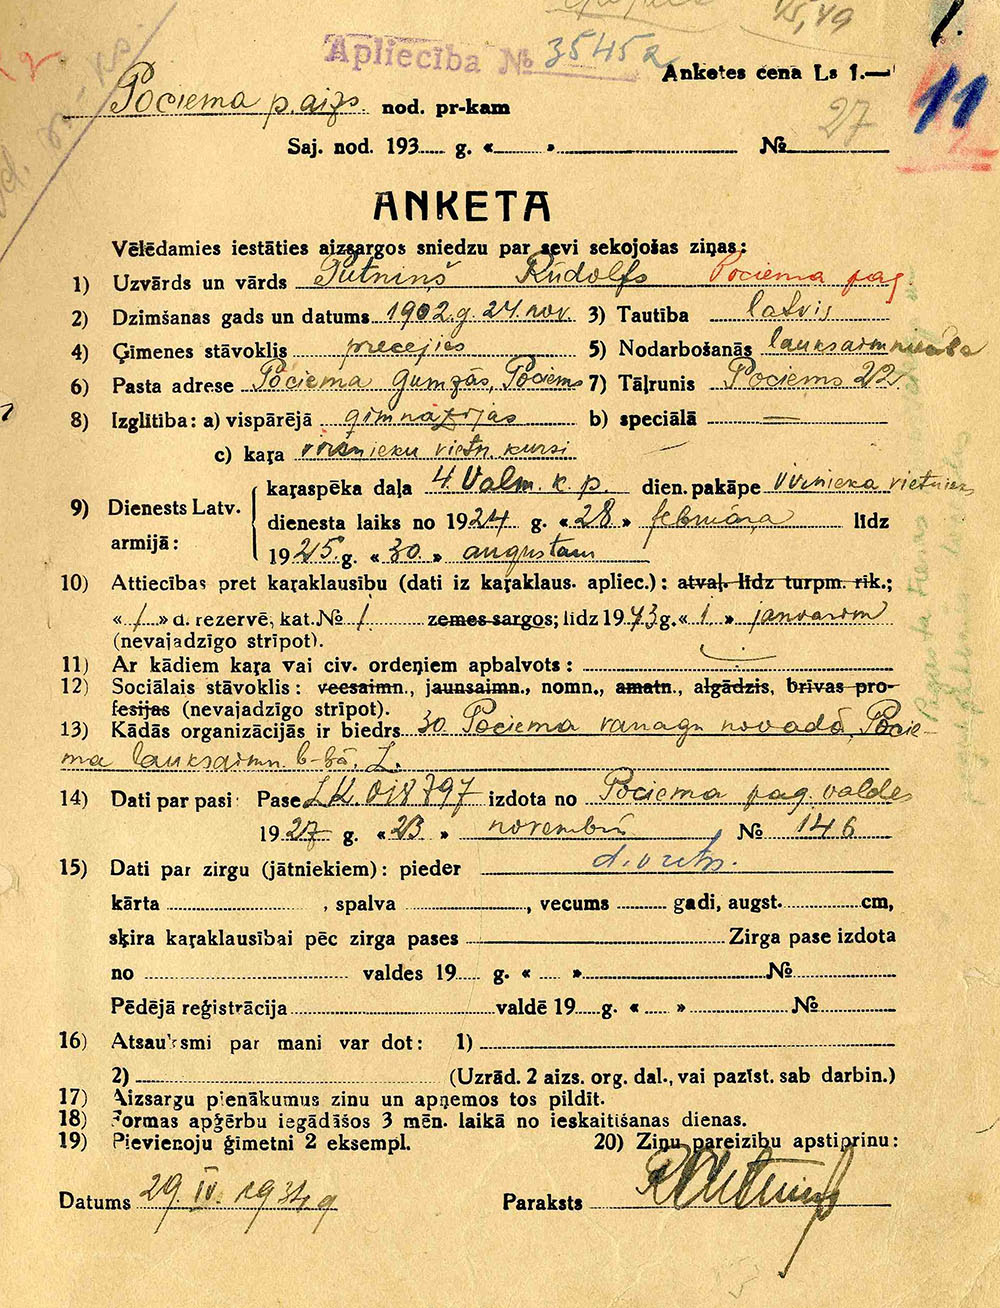 Apliecība № 35452
Anketes cena Ls 1.—
11
27
Pociema p. aizs. nod. pr-kam
Saj. nod. 193 g. « » №
ANKETA
Vēlēdamies iestāties aizsargos sniedzu par sevi sekojošas ziņas:
1) Uzvārds un vārds Putniņš Rūdolfs Pociema pag.
2) Dzimšanas gads un datums 1902.g. 24. nov. 3) Tautība latvis
4) Ģimenes stāvoklis precejies 5) Nodarbošanās lauksaimnieciba
6) Pasta adrese Pociema Gumzās, Pociems 7) Tāļrunis Pociems 22.
8) Izglītība: a) vispārējā gimnazijas b) speciālā —
c) kaŗa virsnieku vietn. kursi
9) Dienests Latv. armijā: kaŗaspēka daļa 4. Valm. k. p. dien. pakāpe virsnieka vietnieks
dienesta laiks no 1924 g. «28» februāra līdz
1925.g. «30.» augustam
10) Attiecības pret kaŗaklausību (dati iz kaŗaklaus. apliec.): atvaļ. līdz turpm. rīk.;
«1» d. rezervē, kat. № 1. zemes sargos; līdz 1943 g. «1» janvarim
(nevajadzīgo strīpot).
11) Ar kādiem kaŗa vai civ. ordeņiem apbalvots:
12) Sociālais stāvoklis: vecsaimn., jaunsaimn., nomn., amatn., algādzis, brīvas pro-
fesijas (nevajadzīgo stripot).
13) Kādās organizācijās ir biedrs 30. Pociema vanagu novadā, Pocie-
ma lauksaimn. b-bā,
14) Dati par pasi: Pase LK. 018797 izdota no Pociema pag. valdes
1927 g. «23» novembrī № 146
15) Dati par zirgu (jātniekiem): pieder
kārta , spalva , vecums gadi, augst. cm,
sķira kaŗaklausībai pēc zirga pases Zirga pase izdota
no valdes 19 g. « » №
Pēdējā reģistrācija valdē 19 g. « » №
16) Atsauksmi par mani var dot: 1)
2) (Uzrād. 2 aizs. org. dal., vai pazīst. sab darbin.)
17) Aizsargu pienākumus zinu un apņemos tos pildīt.
18) Formas apģērbu iegādāšos 3 mēn. laikā no ieskaitīšanas dienas.
19) Pievienoju ģimetni 2 eksempl. 20) Ziņu pareizību apstiprinu:
Datums 29. IV. 1934 g Paraksts RPutniņš